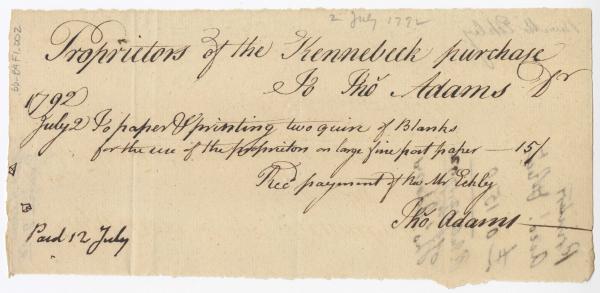 2 July 1792
Proprietors of the Kennebeck purchase
To Tho Adams Dr
1792
July 2 To paper & printing two quire of Blanks
for the use of the proprietors on large fine post paper — 15/
Rec'd payment of the Mr Eckly
Tho Adams
Paid 12 July